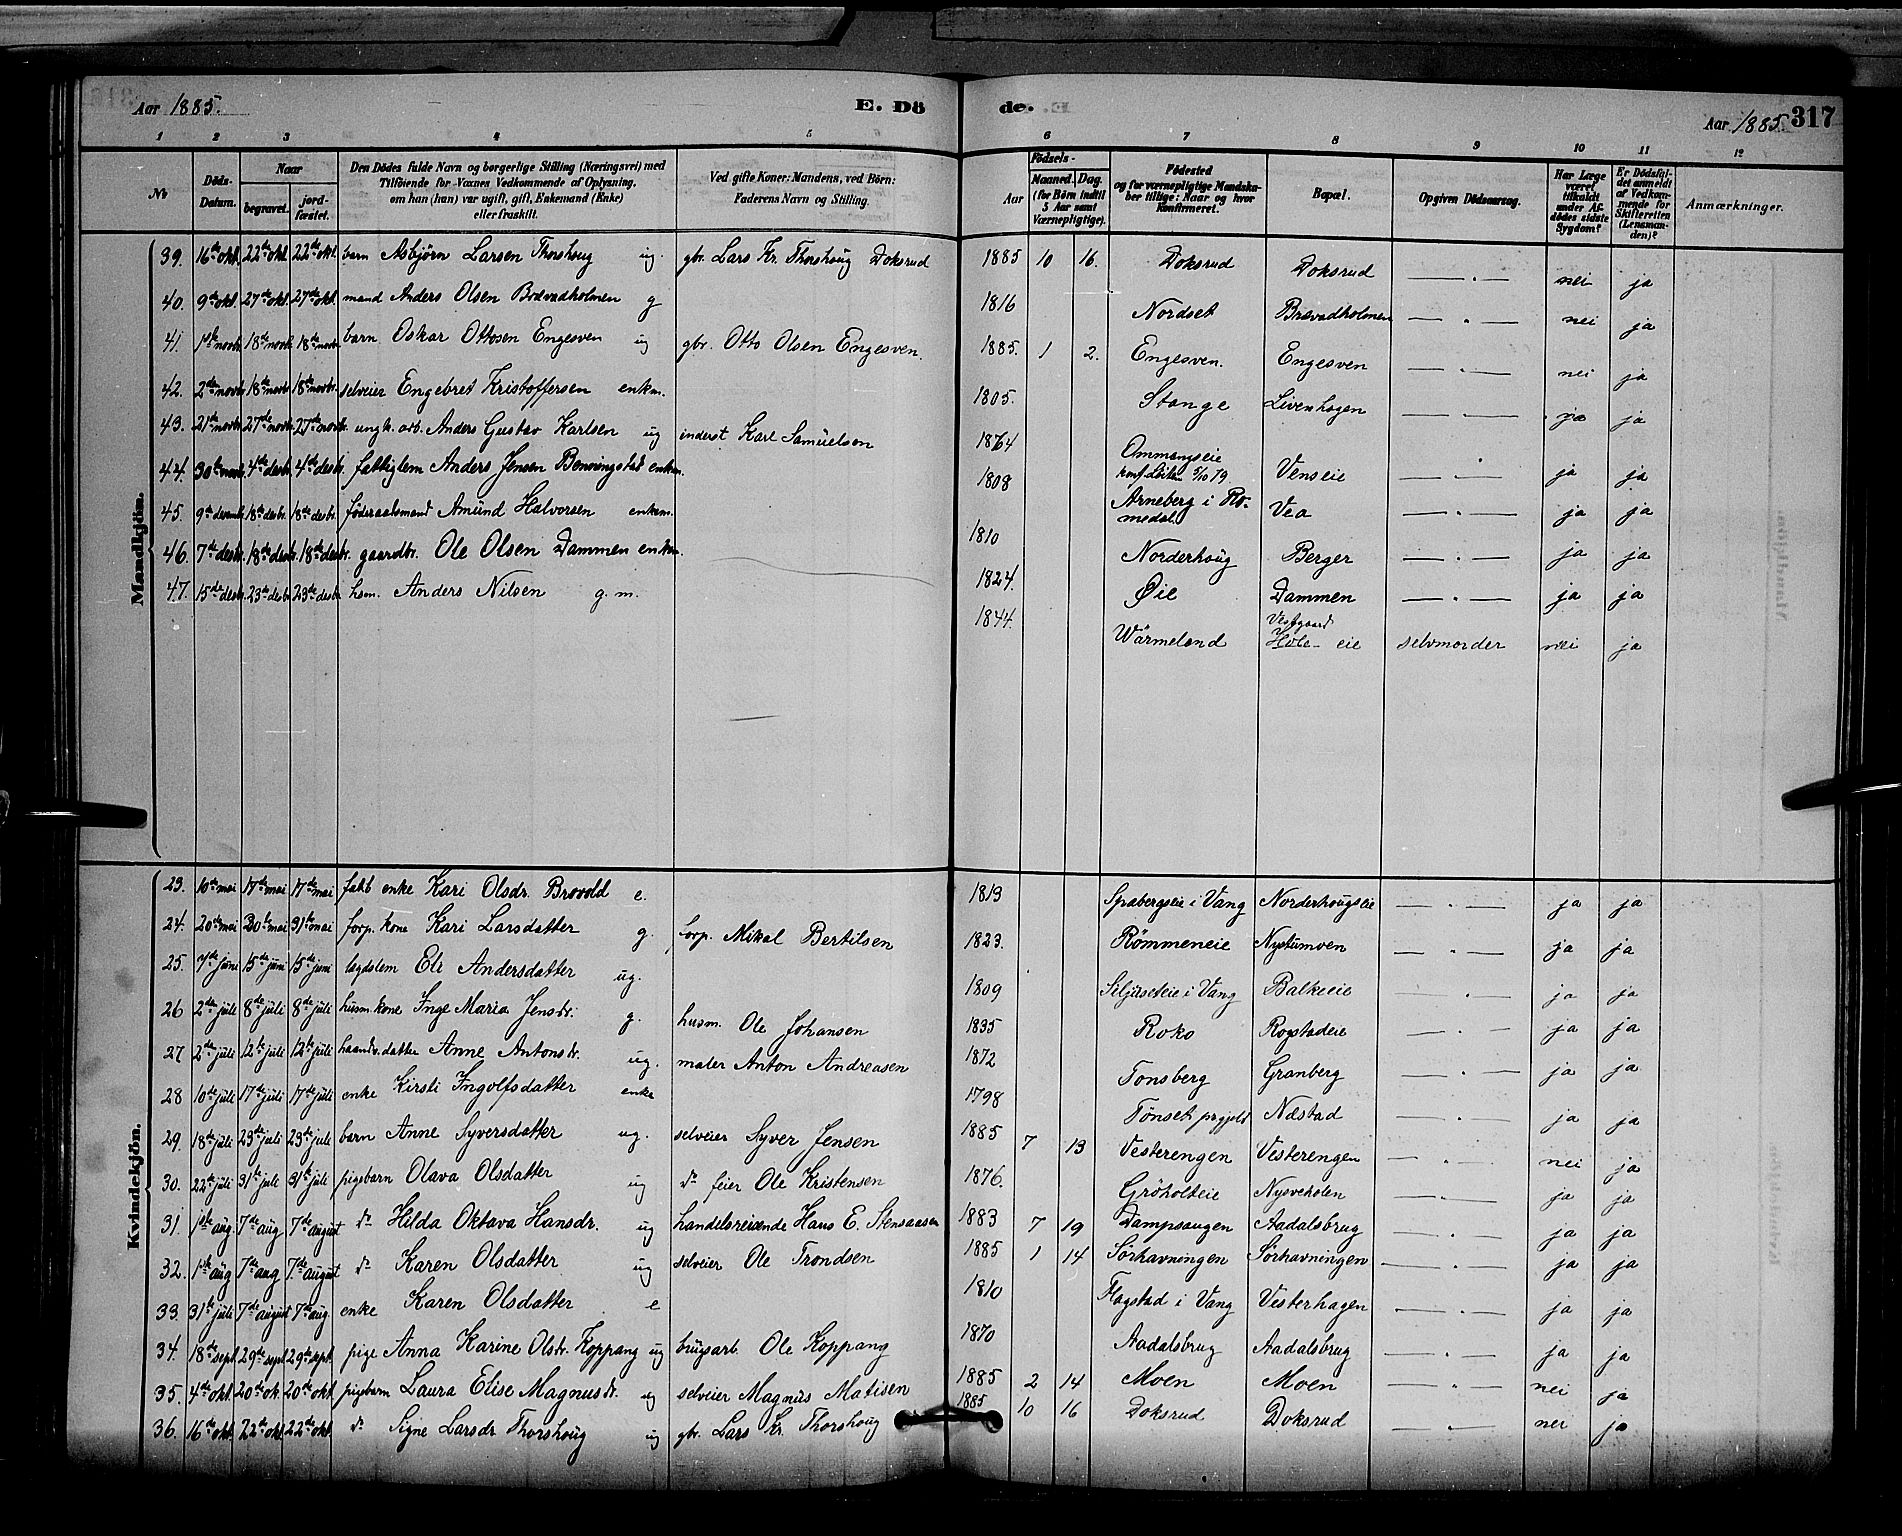 Aar 1885. E. Dö de. Aar 1885. 317
1 2 3 4 5 6 7 8 9 10 11 12
No
Döds-Datum.
Naar
begravet.
jordfæstet.
Den Dödes fulde Navn og borgerlige Stilling (Næringsvei) med
Tilföiende for Voxnes Vedkommende af Oplysning,
om han (hun) var ugift, gift, Enkemand (Enke)
eller fraskilt.
Ved gifte Koner: Mandens, ved Börn:
Faderens Navn og Stilling.
Födsels-
Aar
Maaned. Dag.
(for Börn indtil
5 Aar samt
Værnepligtige).
Födested
og for værnepligtige Mandskaber
tillige: Naar og hvor
konfirmeret.
Bopæl.
Opgiven Dödsaarsag.
Har Læge
været
tilkaldt
under Afdödes
sidste
Sygdom?
Er Dödsfaldet
anmeldt
af Vedkommende
for
Skifteretten
(Lensmanden)?
Anmærkninger.
Mandkjön.
39. 16de okt. 22de okt. 22de okt. barn Asbjörn Larsen Thorshoug ug. gbr. Lars Kr. Thorshoug Doksrud 1885 10 16. Doksrud Doksrud — " — nei ja
40. 9de okt. 27de okt. 27de okt. mand Anders Olsen Brævadholmen g 1816 Nordset Brævadholmen — " — nei ja
41. 1ste novb. 18de novb. 18de novb. barn Oskar Ottosen Engesven ug gbr. Otto Olsen Engesven. 1885. 1 2. Engesven. Engesven — " — nei ja
42. 2den novb. 18de novb. 18de novb. selveier Engebret Kristoffersen enkm. 1805. Stange Livenhagen — " — ja ja
43. 21de novb. 27de novb. 27de novb. ungk. arb. Anders Gustav Karlsen ug inderst Karl Samuelsen 1864 Ommangseie
konf. Löiten 5/10 79 Venseie — " — ja ja
44. 30te novb. 4de desbr. 4de desbr. fattiglem Anders Jensen Benningstad enkm. 1808 Arneberg i Romedal Vea — " — ja ja
45. 9de desemb. 18de desbr. 18de desbr. föderaadsmand Amund Halvorsen enkem. 1810 Norderhoug Berger — " — ja ja
46. 7de desb. 18de desb. 18de desbr. gaardbr. Ole Olsen Dammen enkm. 1824. Öie Dammen — " — ja ja
47. 15de desb. 23de desb. 23de desb. hsm. Anders Nilsen g. m. 1844. Wärmeland Vestgaard
Hole- eie selvmorder nei ja
Kvindekjön.
23. 10de mai 17de mai 17de mai fatt enke Kari Olsdr. Brovold e. 1819 Spabergseie i Vang Norderhougseie — " — ja ja
24. 20de mai 30te mai 31te mai forp. kone Kari Larsdatter g. forp. Mikal Bertilsen 1823. Römmeneie Nystumoen — " — ja ja
25. 7de juni 15de juni 15de juni lægdslem Eli Andersdatter ug. 1809 Siljuseteie i Vang Balkeeie — " — ja ja
26 2den juli 8de juli 8de juli husm. kone Inge Maria Jensdr. g. husm. Ole Johansen 1835 Roko Rogstadeie — " — ja ja
27 2den juli 12te juli 12te juli haandv. datter Anne Antonsdr. ug. maler Anton Andreasen 1872 Tonsberg Granberg — " — ja ja
28 10de juli 17de juli 17de juli enke Kirsti Ingolfsdatter enke 1798 Tönset prgjeld Næstad — " — ja ja
29. 18de juli 23de juli 23de juli barn Anne Syversdatter ug. selveier Syver Jensen 1885 7 13 Vesterengen Vesterengen — " — nei ja
30. 22de juli 31te juli 31te juli pigebarn Olava Olsdatter ug do feier Ole Kristensen 1876. Gröholteie Nysveholen — " — ja ja
31. 1ste aug. 7de aug 7de august do Hilda Oktava Hansdr. ug handelsreisende Hans E. Stensaasen 1883 7 19 Dampsaugen Aadalsbrug — " — ja ja
32. 1ste aug 7de aug 7de august do Karen Olsdatter ug selveier Ole Trondsen 1885 1 14 Sörhavningen Sörhavningen — " — ja ja
33. 31te juli 7de august 7de aug. enke Karen Olsdatter e 1810 Flagstad i Vang Vesterhagen — " — ja ja
34. 18de sept. 29de sept 29de sept. pige Anna Karine Olsdr. Koppang ug brugsarb. Ole Koppang 1870 Aadalsbrug Aadalsbrug — " — ja ja
35. 4de okt. 20de okt. 20de okt. pigebarn Laura Elise Magnusdr. ug selveier Magnus Matisen 1885 2 14 Moen Moen — " — nei ja
36. 16de okt. 22de okt. 22de okt. do Signe Larsdr. Thorshoug ug gbr. Lars Kr. Thorshoug 1885 10 16 Doksrud Doksrud — " — nei ja